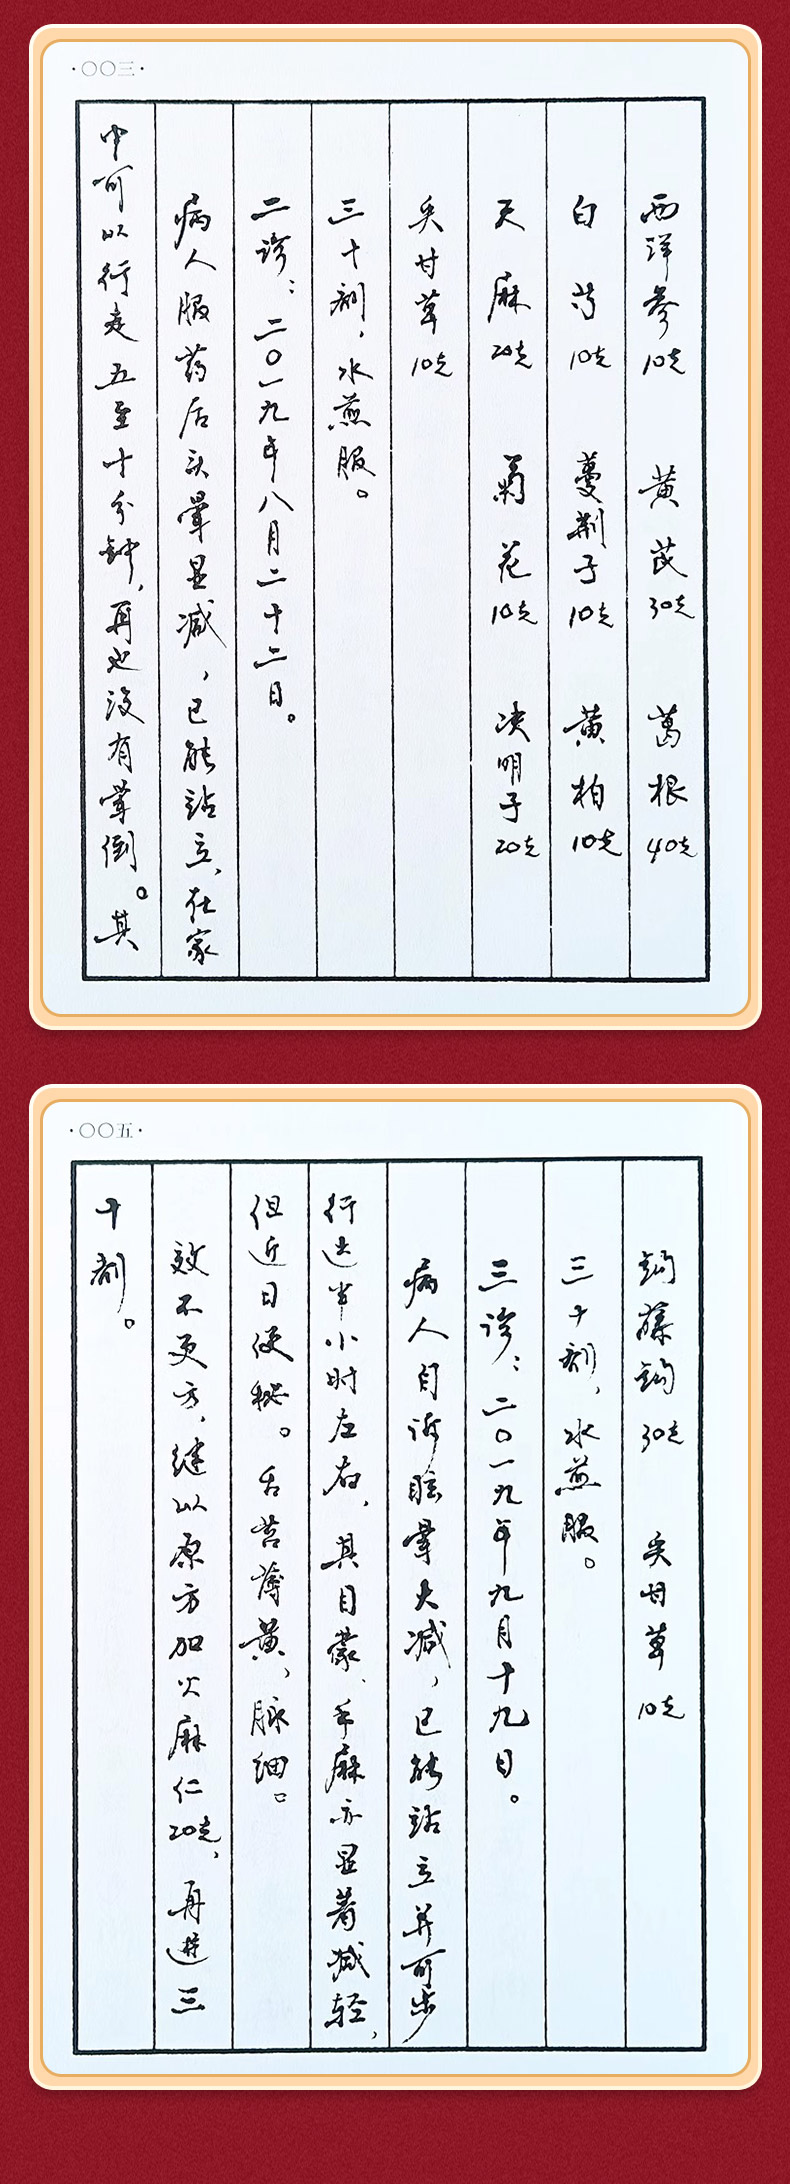 ·〇〇三·
西洋参10克 黄芪30克 葛根40克
白芍10克 蔓荆子10克 黄柏10克
天麻20克 菊花10克 决明子20克
炙甘草10克
三十剂，水煎服。
二诊：二〇一九年八月二十二日。
病人服药后头晕显减，已能站立，在家
中可以行走五至十分钟，再也没有晕倒。其
·〇〇五·
钩藤钩30克 炙甘草10克
三十剂，水煎服。
三诊：二〇一九年九月十九日。
病人自诉眩晕大减，已能站立并可步
行达半小时左右，其目蒙、手麻亦显著减轻，
但近日便秘。舌苔薄黄，脉细。
效不更方，继以原方加火麻仁20克，再进三
十剂。